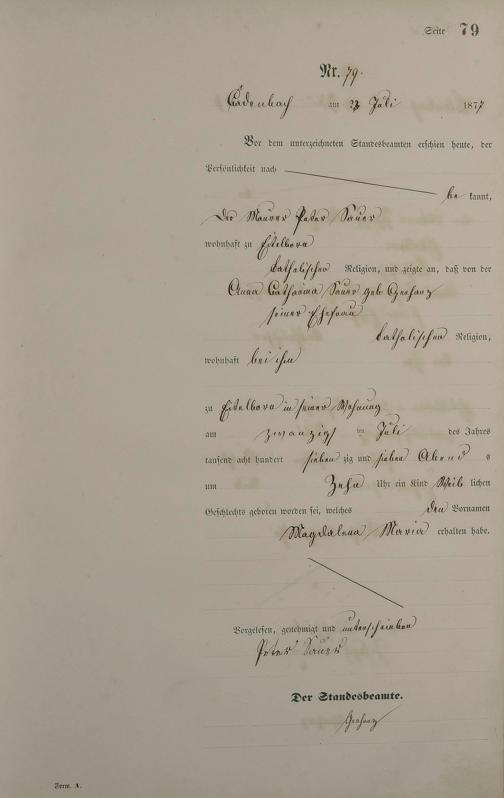 Seite 79
Nr. 79.
Cadenbach am 23 Juli 1877
Vor dem unterzeichneten Standesbeamten erschien heute, der
Persönlichkeit nach
be kannt,
Der Maurer Peter Sauer
wohnhaft zu Eitelborn
katholischer Religion, und zeigte an, daß von der
Anna Catharina Sauer geb
seiner Ehefrau
katholischen Religion,
wohnhaft bei ihm
zu Eitelborn in seiner Wohnung
am zwanzigs ten Juli des Jahres
tausend acht hundert sieben zig und sieben Abend s
um Zehn Uhr ein Kind Weib lichen
Geschlechts geboren worden sei, welches den Vornamen
Magdalena Maria erhalten habe.
Vorgelesen, genehmigt und unterschrieben
Peter Sauer
Der Standesbeamte.
Form. A.